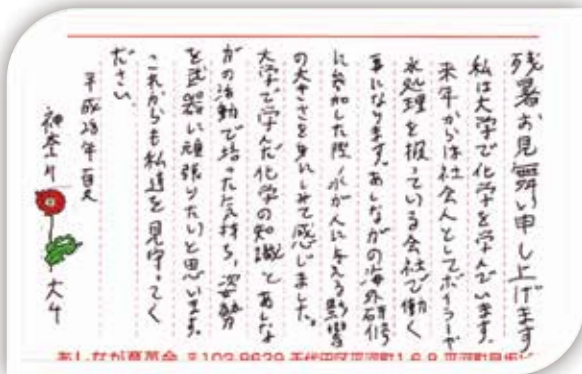 残暑お見舞い申し上げます
私は大学で化学を学んでいます。
来年からは社会人としてボイラーや
水処理を扱っている会社で働く
事になります。あしながの海外研修
に参加した際、水が人に与える影響
の大きさを身にしみて感じました。
大学で学んだ化学の知識とあしな
がの活動で培った気持ち、姿勢
を武器に頑張りたいと思います。
これからも私達を見守ってく
ださい。
平成28年 夏
神奈川 大4
あしなが育英会 〒102-8639 千代田区平河町1-6-8 平河町貝坂ビ